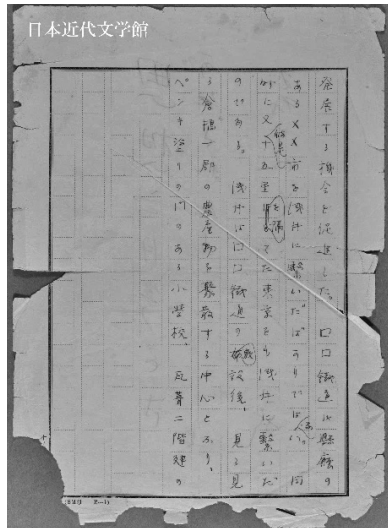 日本近代文学館
発展する機会を促進した。□□鐵道は縣廳の
ある××市を浅井に繋いだばかりではない。同
時に又十五里を隔てた東京をも浅井に繋いだ
のである。浅井は□□鐵道の敷設後、見る見
る倉橋一郡の農産物を聚散する中心となり、
ペンキ塗りの門のある小学校、瓦葺二階建の